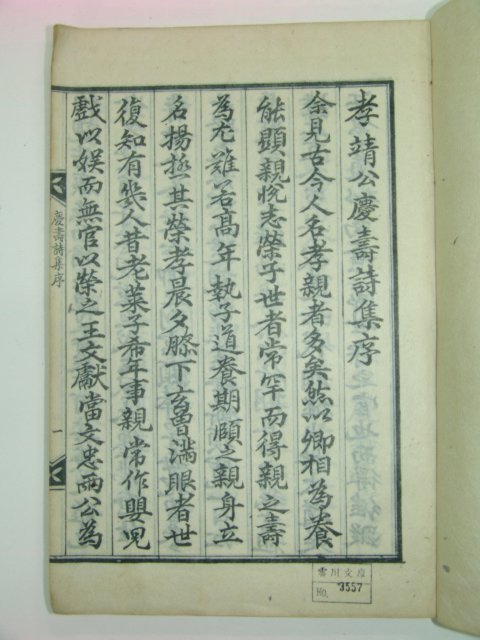 孝靖公慶壽詩集序
余見古今人名孝親者多矣然以卿相為養
能顯親悅志榮于世者常罕而得親之壽
為尤難若高年執子道養期頤之親身立
名揚極其榮孝晨夕膝下玄曾滿眼者世
復知有幾人昔老萊子希年事親常作嬰児
戲以娛而無官以榮之王文獻當文忠兩公為
慶壽詩集序
一
雲川文庫
No. 3557